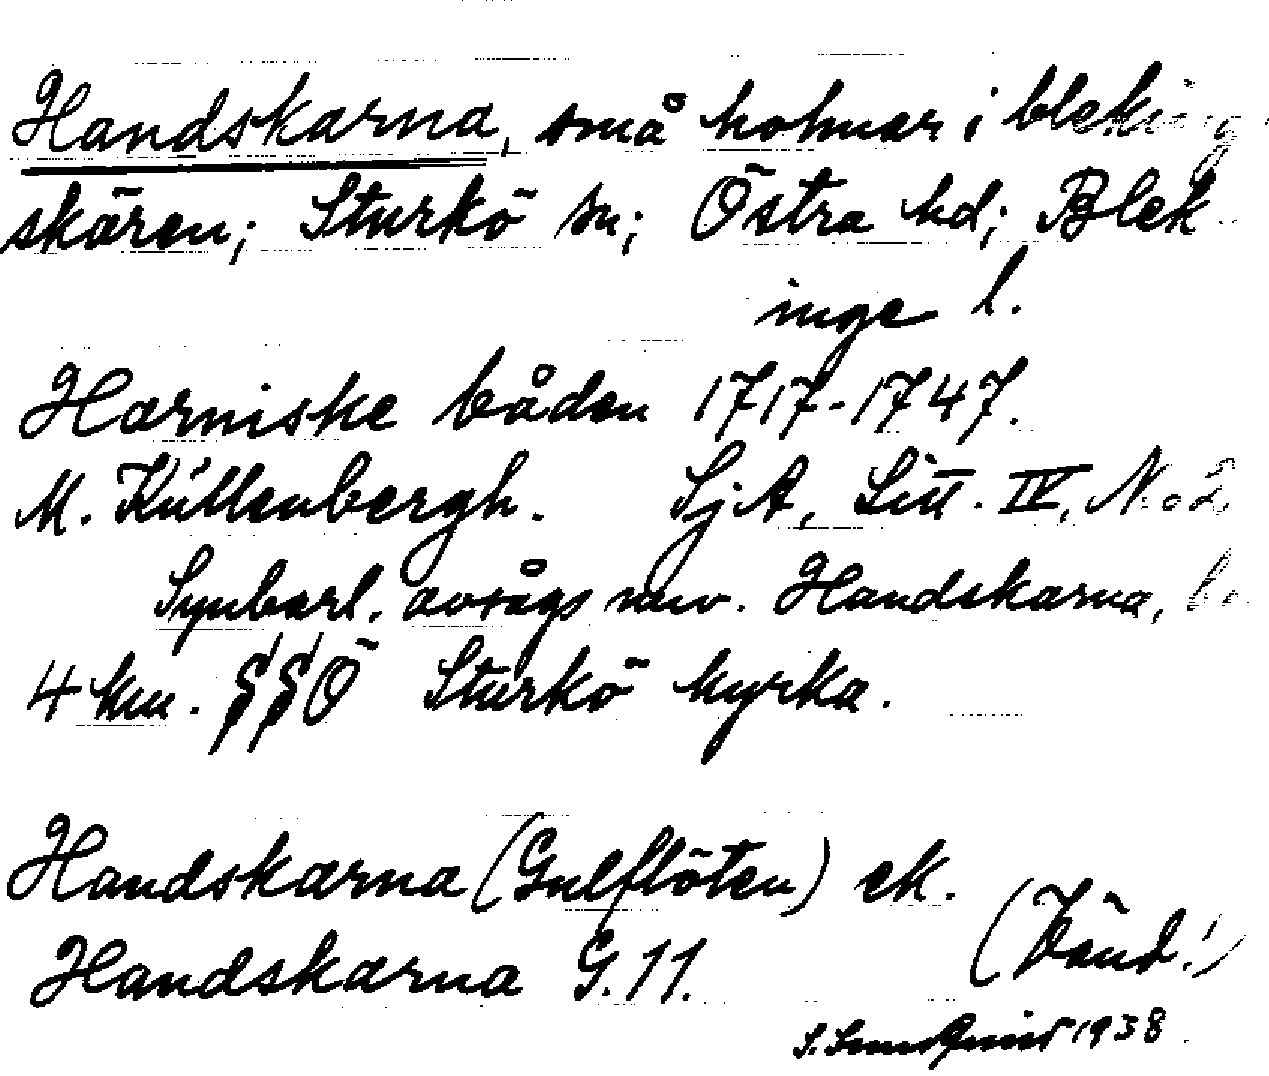 Handskarna, små holmar i bleking
skären; Sturkö sn; Östra hd; Blek
inge l.
Harniske båden 1717-1747.
M. Küllenbergh. SjA, Litt. IV, N:o 2
Synbarl. avsågs nuv. Handskarna,
4 km. SSÖ Sturkö kyrka.
Handskarna (Gulflöten) ek.
Handskarna G.11.
(Vänd!)
1938